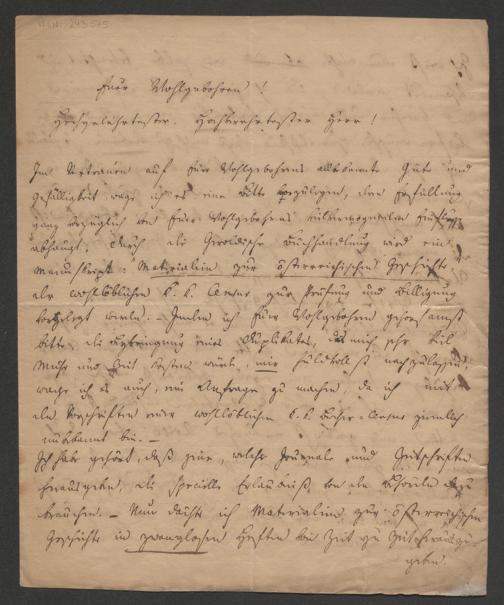 HIN 243.575
Euer Wohlgebohren!
Hochgelehrtester, Hochverehrtester Herr!
Im Vertrauen auf Euer Wohlgebohrens allbekannte Güte und
Gefälligkeit wage ich es eine Bitte, deren Erfüllung
ganz bezüglich von Euer Wohlgebohrens
abhängt. Durch die Geroldsche Buchhandlung wird ein
Manuskript: Materialien zur österreichischen Geschichte
der wohllöblichen k. k. Censur zur Prüfung und Billigung
vorgelegt werden. – Indem ich Euer Wohlgebohren gehorsamst
bitte, die eines Duplikates, das mich sehr viel
Mühe und Zeit kosten würde, mir huldvollst nachzulassen,
wage ich es auch, eine Anfrage zu machen, da ich mit
den Vorschriften einer wohllöblichen k. k. Bücher-Censur ziemlich
unbekannt bin. –
Ich habe gehört, daß jene, welche Journale und Zeitschriften
herausgeben, die specielle Erlaubniß von der Behörde dazu
brauchen. – Nun dächte ich Materialien zur österreichischen
Geschichte in zwanglosen Heften von Zeit zu Zeit
geben.